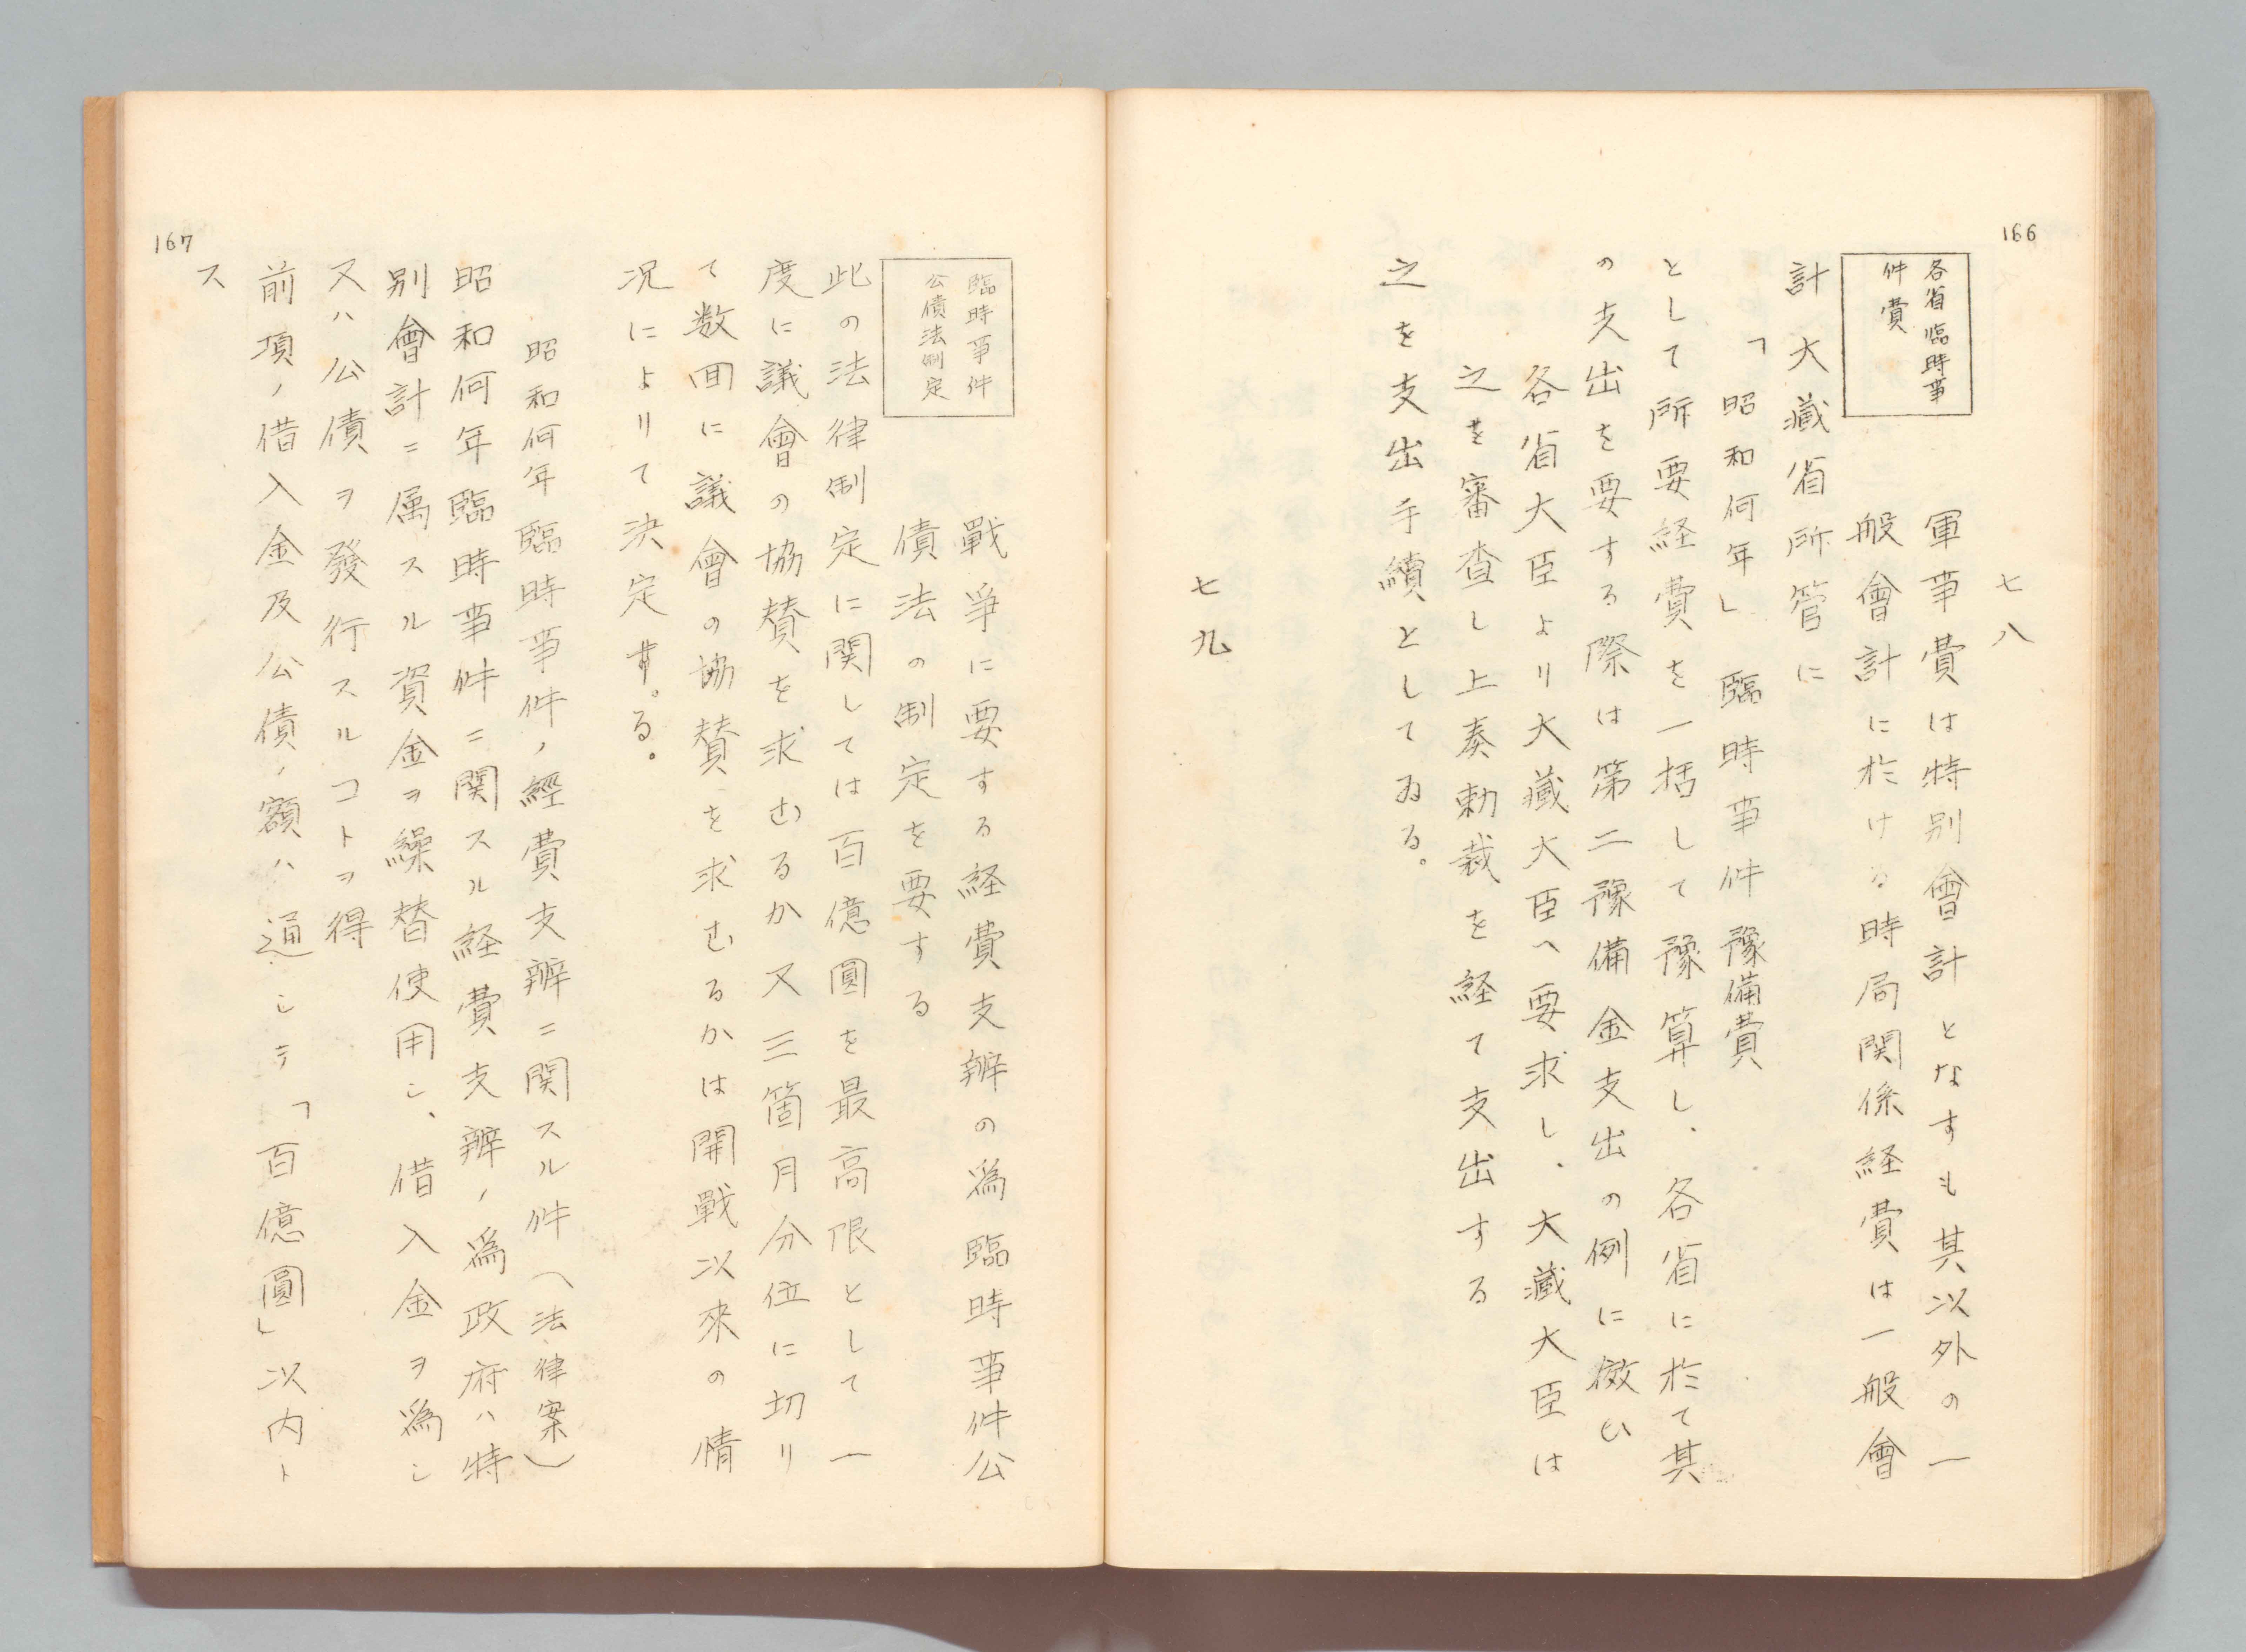 166
七八
各省臨時事
件費
軍事費は特別會計となすも其以外の一
般會計に於ける時局関係経費は一般會
計大藏省所管に
「昭和何年」臨時事件豫備費
として所要経費を一括して豫算し、各省に於て其
の支出を要する際は第二豫備金支出の例に倣ひ
各省大臣より大藏大臣へ要求し、大藏大臣は
之を審査し上奏勅裁を経て支出する
之を支出手續としてゐる。
七九
臨時事件
公債法制定
戰爭に要する経費支辨の爲臨時事件公
債法の制定を要する
此の法律制定に関しては百億圓を最高限として一
度に議會の協賛を求むるか又三箇月分位に切り
て数回に議會の協賛を求むるかは開戰以來の情
况によりて決定する。
昭和何年臨時事件ノ經費支辨ニ関スル件(法律案)
昭和何年臨時事件ニ関スル経費支辨ノ爲政府ハ特
別會計ニ属スル資金ヲ繰替使用シ、借入金ヲ爲シ
又ハ公債ヲ發行スルコトヲ得
前項ノ借入金及公債ノ額ハ通シテ「百億圓」以内ト
ス
167